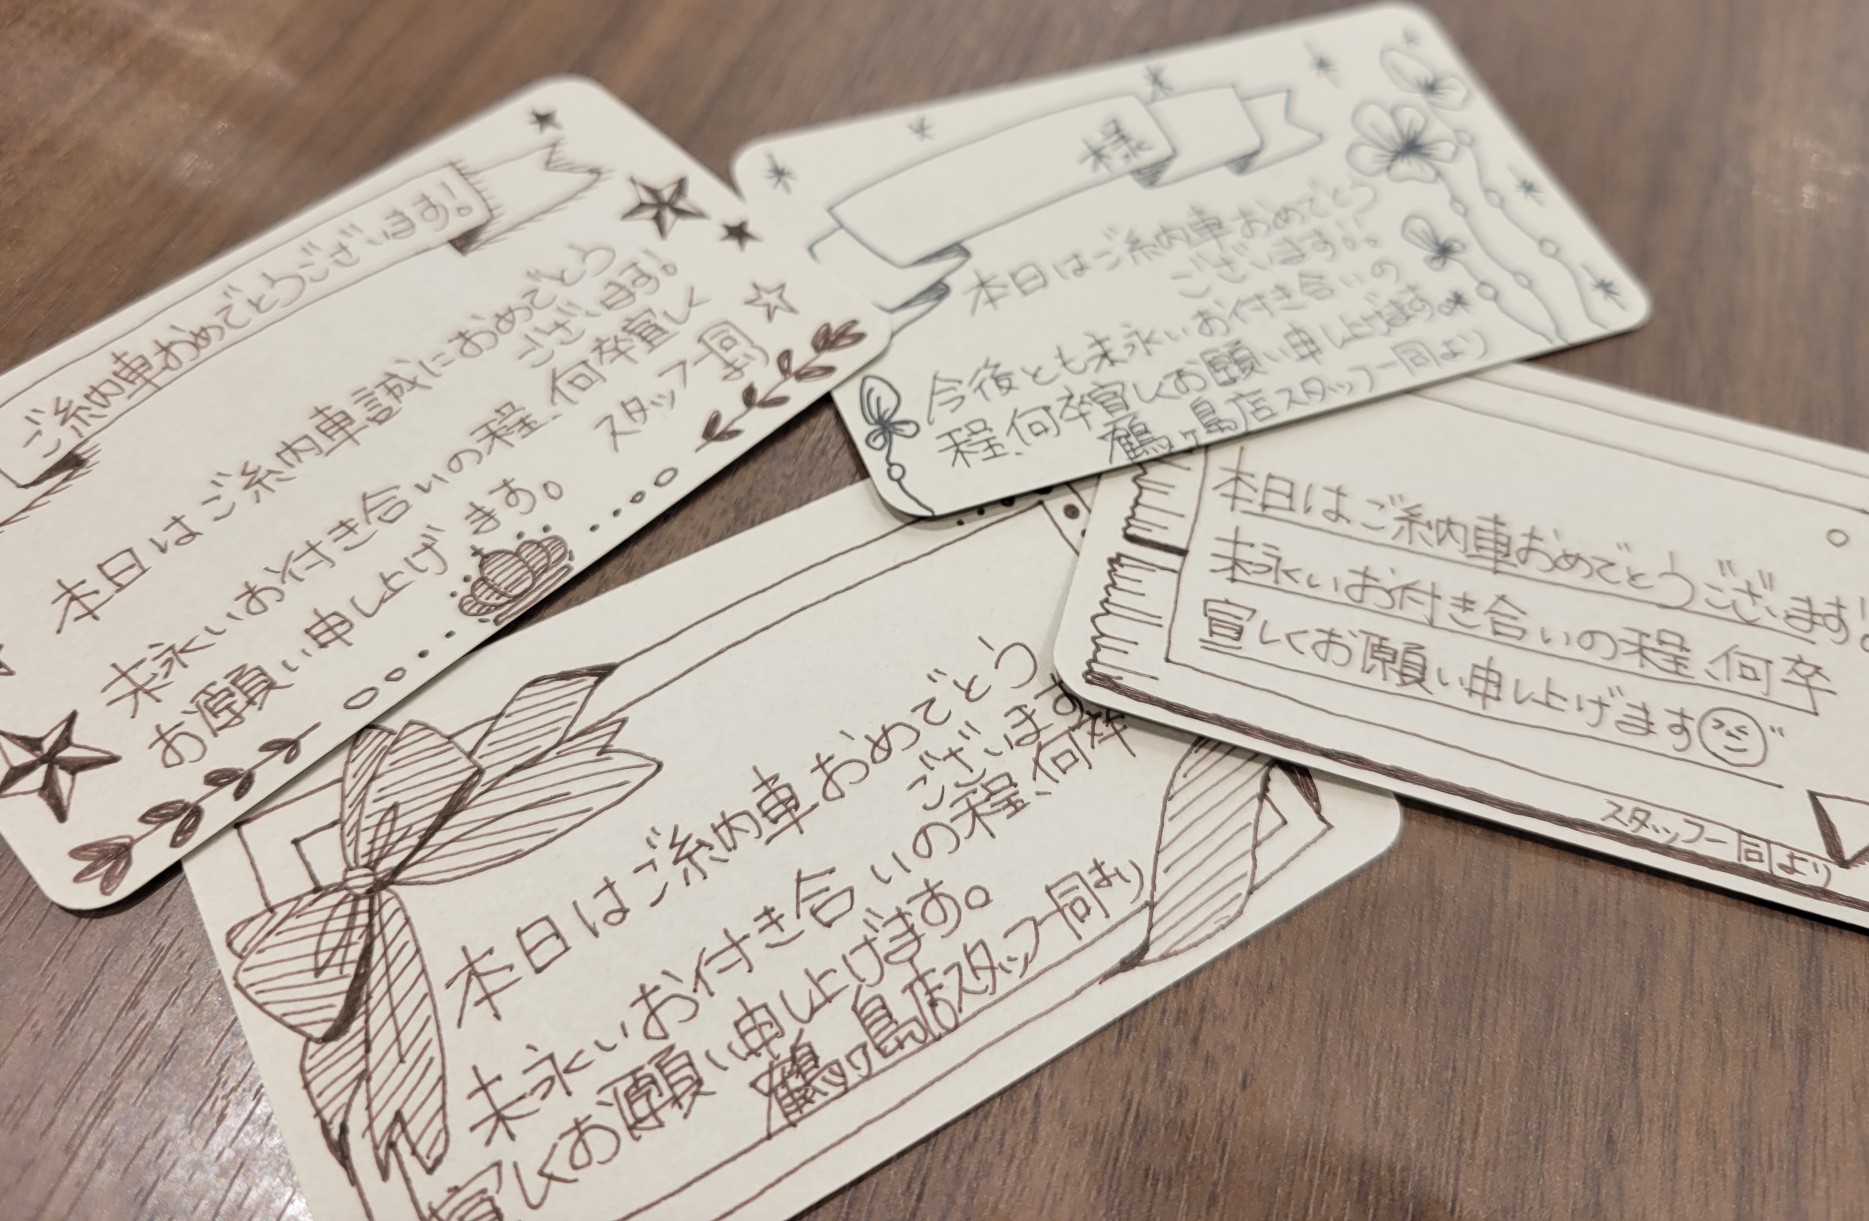 ご納車おめでとうございます!。
本日はご納車誠におめでとう
ございます!。
末永いお付き合いの程、何卒宜しく
お願い申し上げます。
スタッフ一同
より
様
本日はご納車おめでとう
ございます!。
今後とも末永いお付き合いの
程、何卒宜しくお願い申し上げます。
鶴ヶ島店スタッフ一同より
本日はご納車おめでとうございます!
末永いお付き合いの程、何卒
宜しくお願い申し上げます
スタッフ一同より
本日はご納車おめでとう
ございます
末永いお付き合いの程、何卒
宜しくお願い申し上げます。
鶴ヶ島店スタッフ一同より